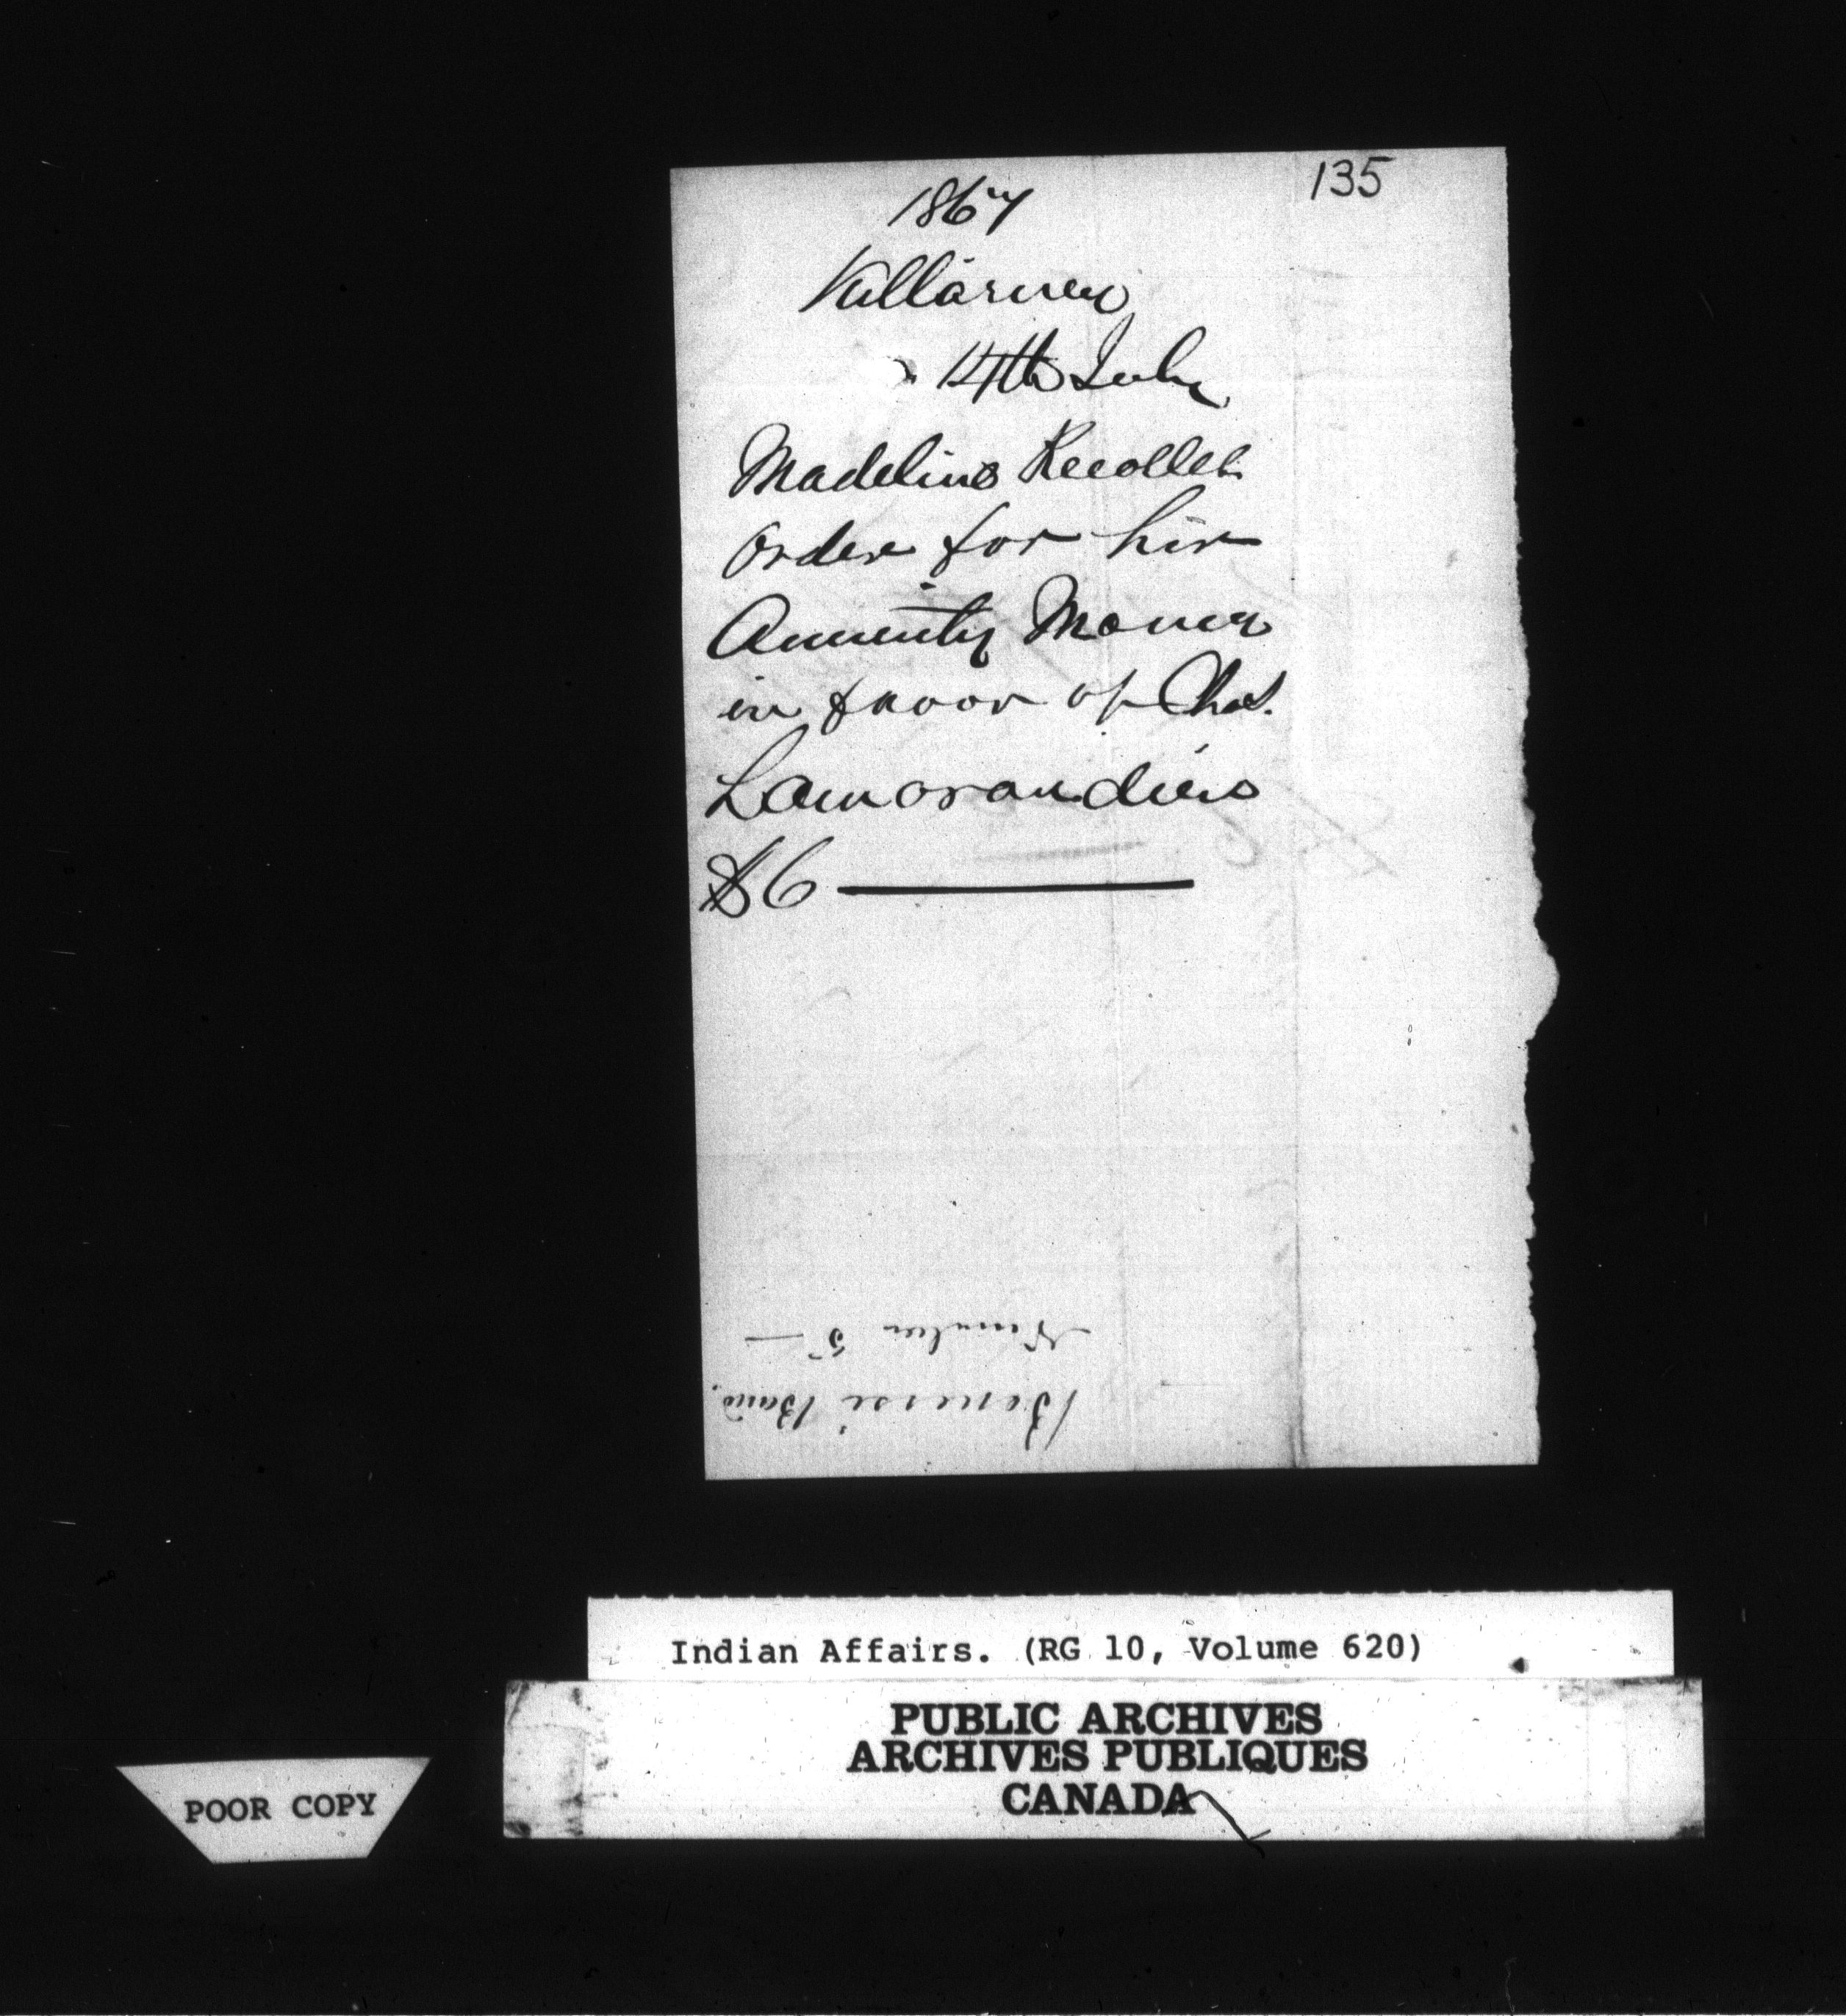 135
1867
Killarney
14th July
Madeline Recollet
Order for her
Annuity Money
in favor of Chas.
Lamorandiere
$6
Number 5
Band
Indian Affairs. (RG 10, Volume 620)
PUBLIC ARCHIVES
ARCHIVES PUBLIQUES
CANADA
POOR COPY